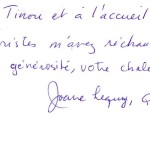 Tinou et à l'accueil
ristes m'avez réchau
générosité, votre chale
Joane